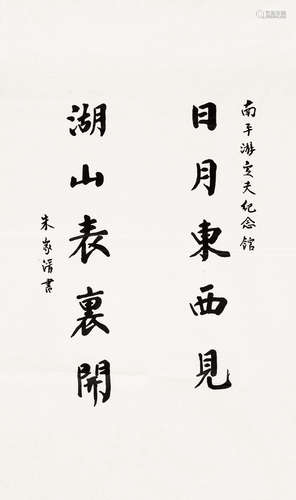 南平游定夫纪念馆
日月東西見
湖山表裏開
朱家溍書